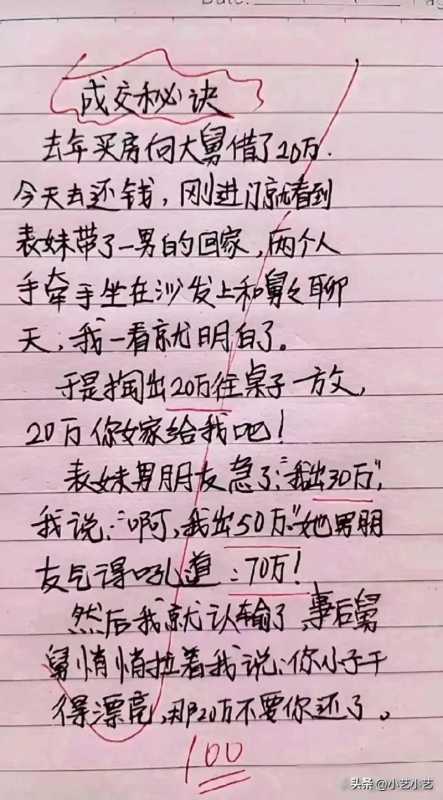 成交秘诀
去年买房向大舅借了20万.
今天去还钱，刚进门就看到
表妹带了一男的回家，两个人
手牵手坐在沙发上和舅舅聊
天，我一看就明白了。
于是掏出20万往桌子一放，
20万你女家给我吧！
表妹男朋友急了："我出30万"，
我说："啊，我出50万"她男朋
友气得吼道：70万！
然后我就认输了，事后舅
舅悄悄拉着我说：你小子干
得漂亮，那20万不要你还了。
100
头条 @小艺小艺